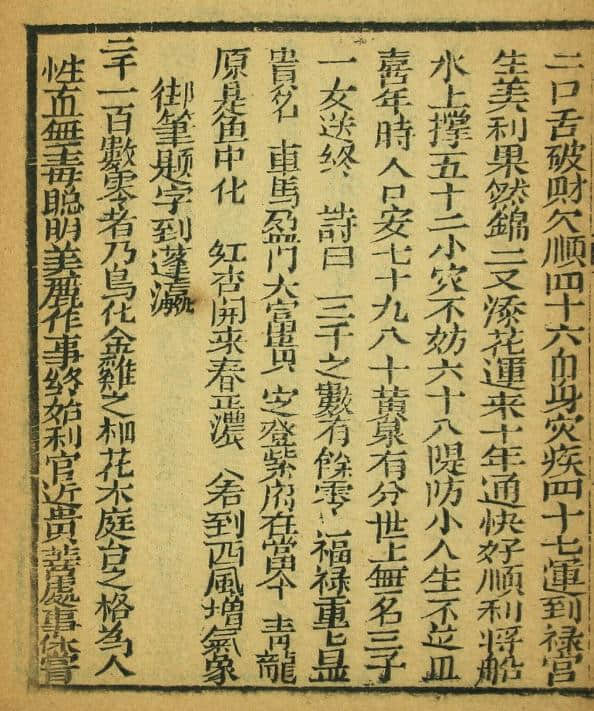 二口舌破財欠順四十六血身災疾四十七運到禄宮
生美利果然錦上又添花運来十年通快好順利将船
水上撑五十二小灾不妨六十八隄防小人生不並皿
喜年時人口安七十九八十黄泉有分世上無名三子
一女送終 詩曰 三千之數有餘零 福禄重七显
貴名 車馬盈門大富貴 定登紫府在當今 青龍
原是鱼中化 紅杏開来春正濃 若到西風增氣象
御筆題字到蓬瀛
二千一百數零者乃鳥化金雞之相花木庭台之格為人
性直無毒聪明美麗作事終始利官近贵善處事体